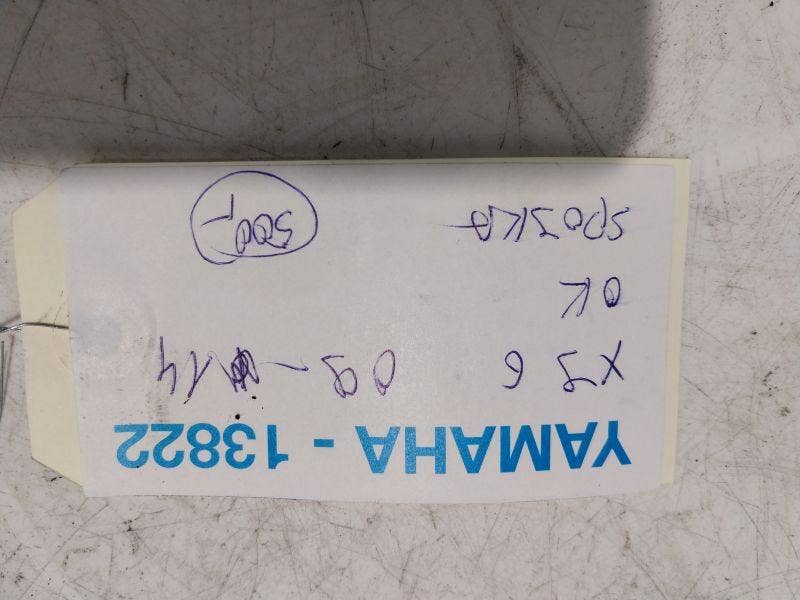 YAMAHA - 13822
XJ6 09 - 14
OK
SPOJKA 500,-